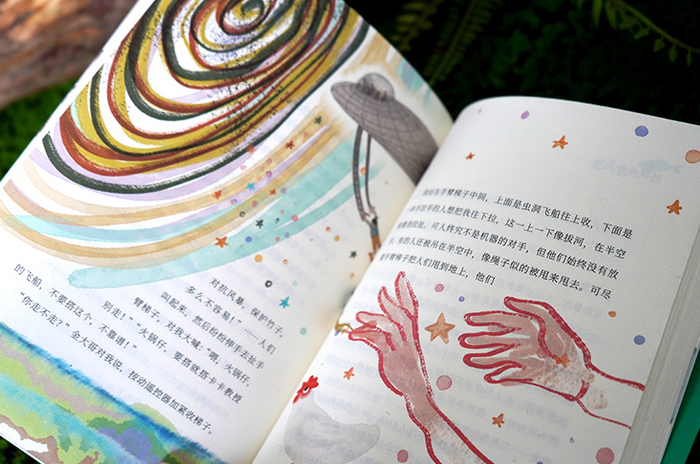 对抗风暴，保护竹子，
多么不容易！” ……人们
叫起来，然后纷纷伸手去扯手
臂梯子，对我大喊：“喂，火锅仔，
别走！” “火锅仔，要搭就搭卡卡教授
的飞船，不要搭这个，不靠谱！”
“你走不走？”金大哥对我说，按动遥控器加紧收梯子。
在手臂梯子中间，上面是虫洞飞船往上收，下面是
的人想把我往下拉，这一上一下像拔河，在半空
可人终究不是机器的对手，但他们始终没有放
有的人还被吊在半空中，像绳子似的被甩来甩去。可尽
手臂梯子把人们甩到地上，他们